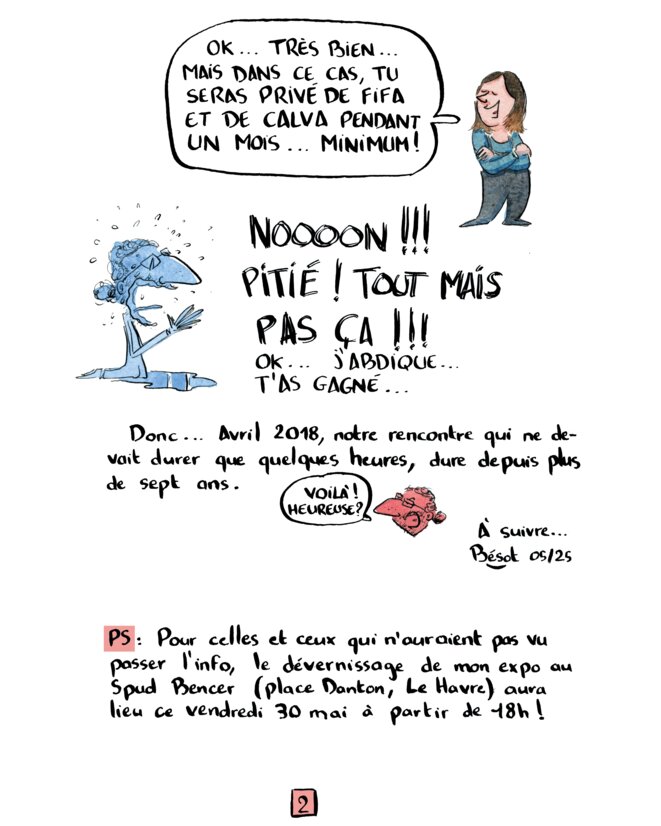 OK... TRÈS BIEN...
MAIS DANS CE CAS, TU
SERAS PRIVÉ DE FIFA
ET DE CALVA PENDANT
UN MOIS... MINIMUM!
NOOOON !!!
PITIÉ ! TOUT MAIS
PAS ÇA !!!
OK... J'ABDIQUE...
T'AS GAGNÉ...
Donc... Avril 2018, notre rencontre qui ne de-
vait durer que quelques heures, dure depuis plus
de sept ans.
VOILÀ!
HEUREUSE?
À suivre...
Bésot 05/25
PS: Pour celles et ceux qui n'auraient pas vu
passer l'info, le dévernissage de mon expo au
Spud Bencer (place Danton, Le Havre) aura
lieu ce vendredi 30 mai à partir de 18h!
2